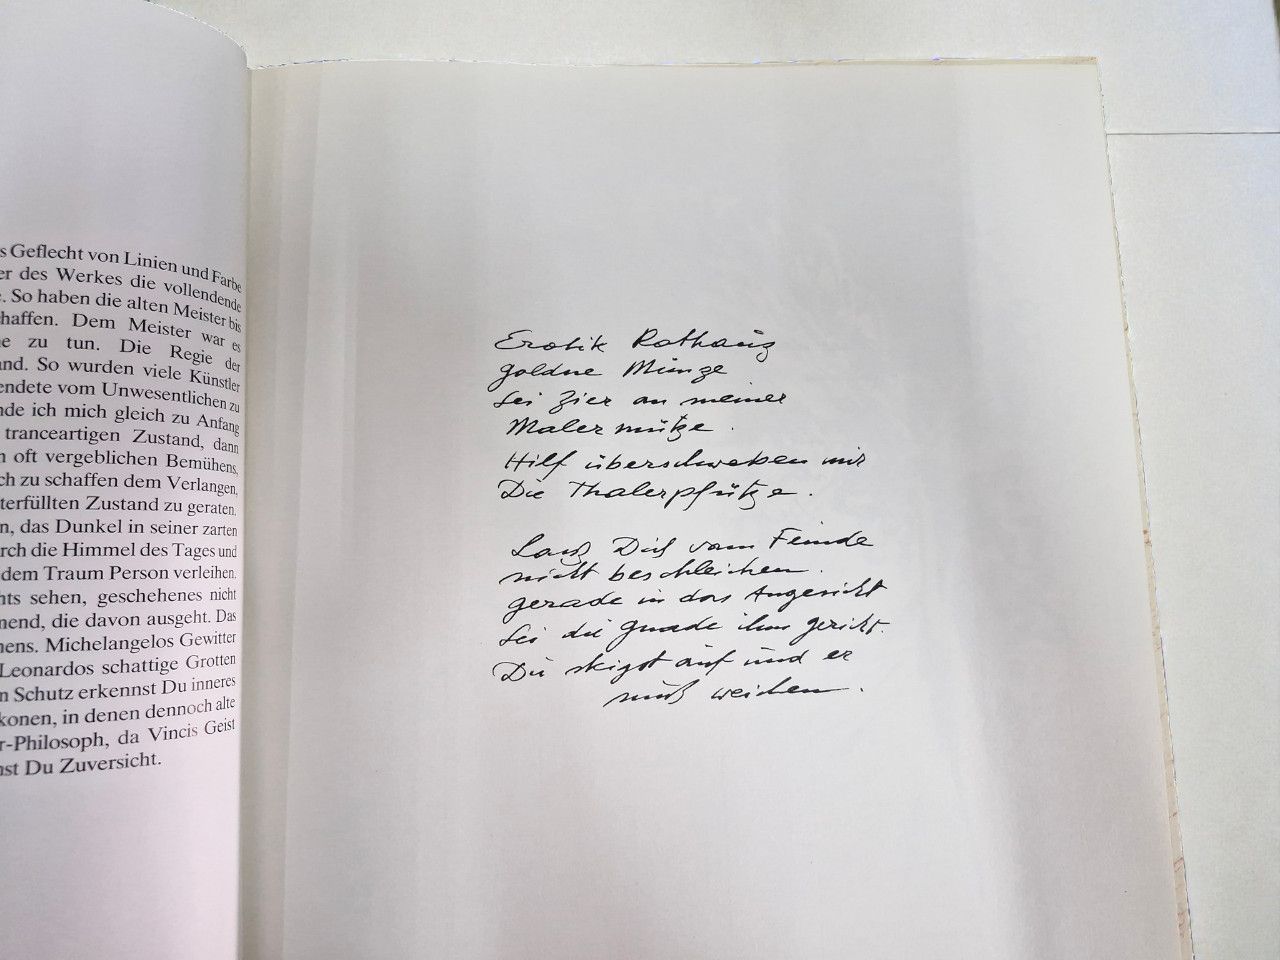 s Geflecht von Linien und Farbe
er des Werkes die vollendende
. So haben die alten Meister bis
haffen. Dem Meister war es
e zu tun. Die Regie der
and. So wurden viele Künstler
endete vom Unwesentlichen zu
nde ich mich gleich zu Anfang
tranceartigen Zustand, dann
n oft vergeblichen Bemühens,
ch zu schaffen dem Verlangen,
terfüllten Zustand zu geraten.
n, das Dunkel in seiner zarten
rch die Himmel des Tages und
dem Traum Person verleihen.
hts sehen, geschehenes nicht
nend, die davon ausgeht. Das
nens. Michelangelos Gewitter
Leonardos schattige Grotten
n Schutz erkennst Du inneres
konen, in denen dennoch alte
r-Philosoph, da Vincis Geist
nst Du Zuversicht.
Erotik Rathaus
goldne Münze
Sei Zier an meiner
Malermütze.
Hilf überschweben mir
Die Thalerpfütze.
Lass Dich vom Feinde
nicht beschleichen.
gerade in das Angesicht
Sei die gnade ihm gericht.
Du steigst auf und er
muß weichen.